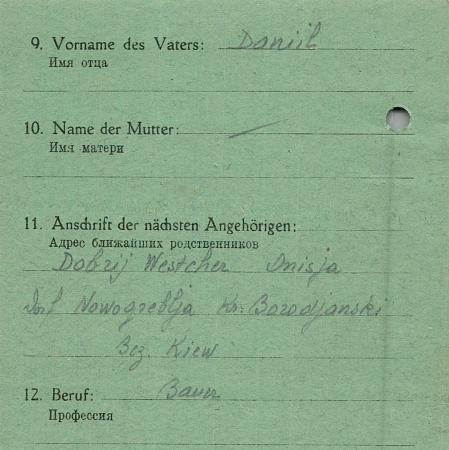 9. Vorname des Vaters: Daniil
Имя отца
10. Name der Mutter: —
Имя матери
11. Anschrift der nächsten Angehörigen:
Адрес ближайших родственников
Dobrij Westcher Onisja
Dorf Nowogreblja Kr. Borodjanski
Bez. Kiew
12. Beruf: Bauer
Профессия